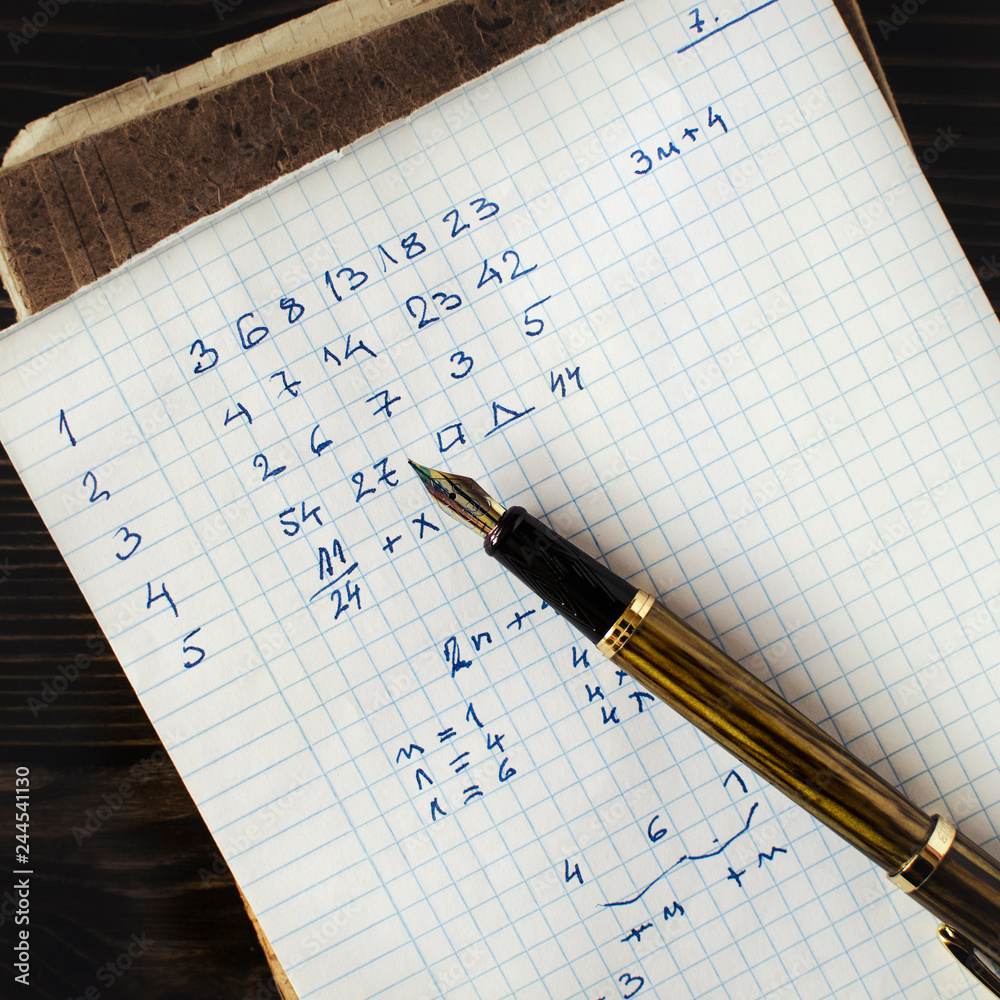 7.
3n+4
1 3 6 8 13 18 23
2 4 7 14 23 42
3 2 6 7 3 5
4 54 27 □ △ 44
5 11/24 + x
2n +
n = 1
n = 4
n = 6
4
4
4
4 6 7
+ n + n
3
Adobe Stock | #244541130